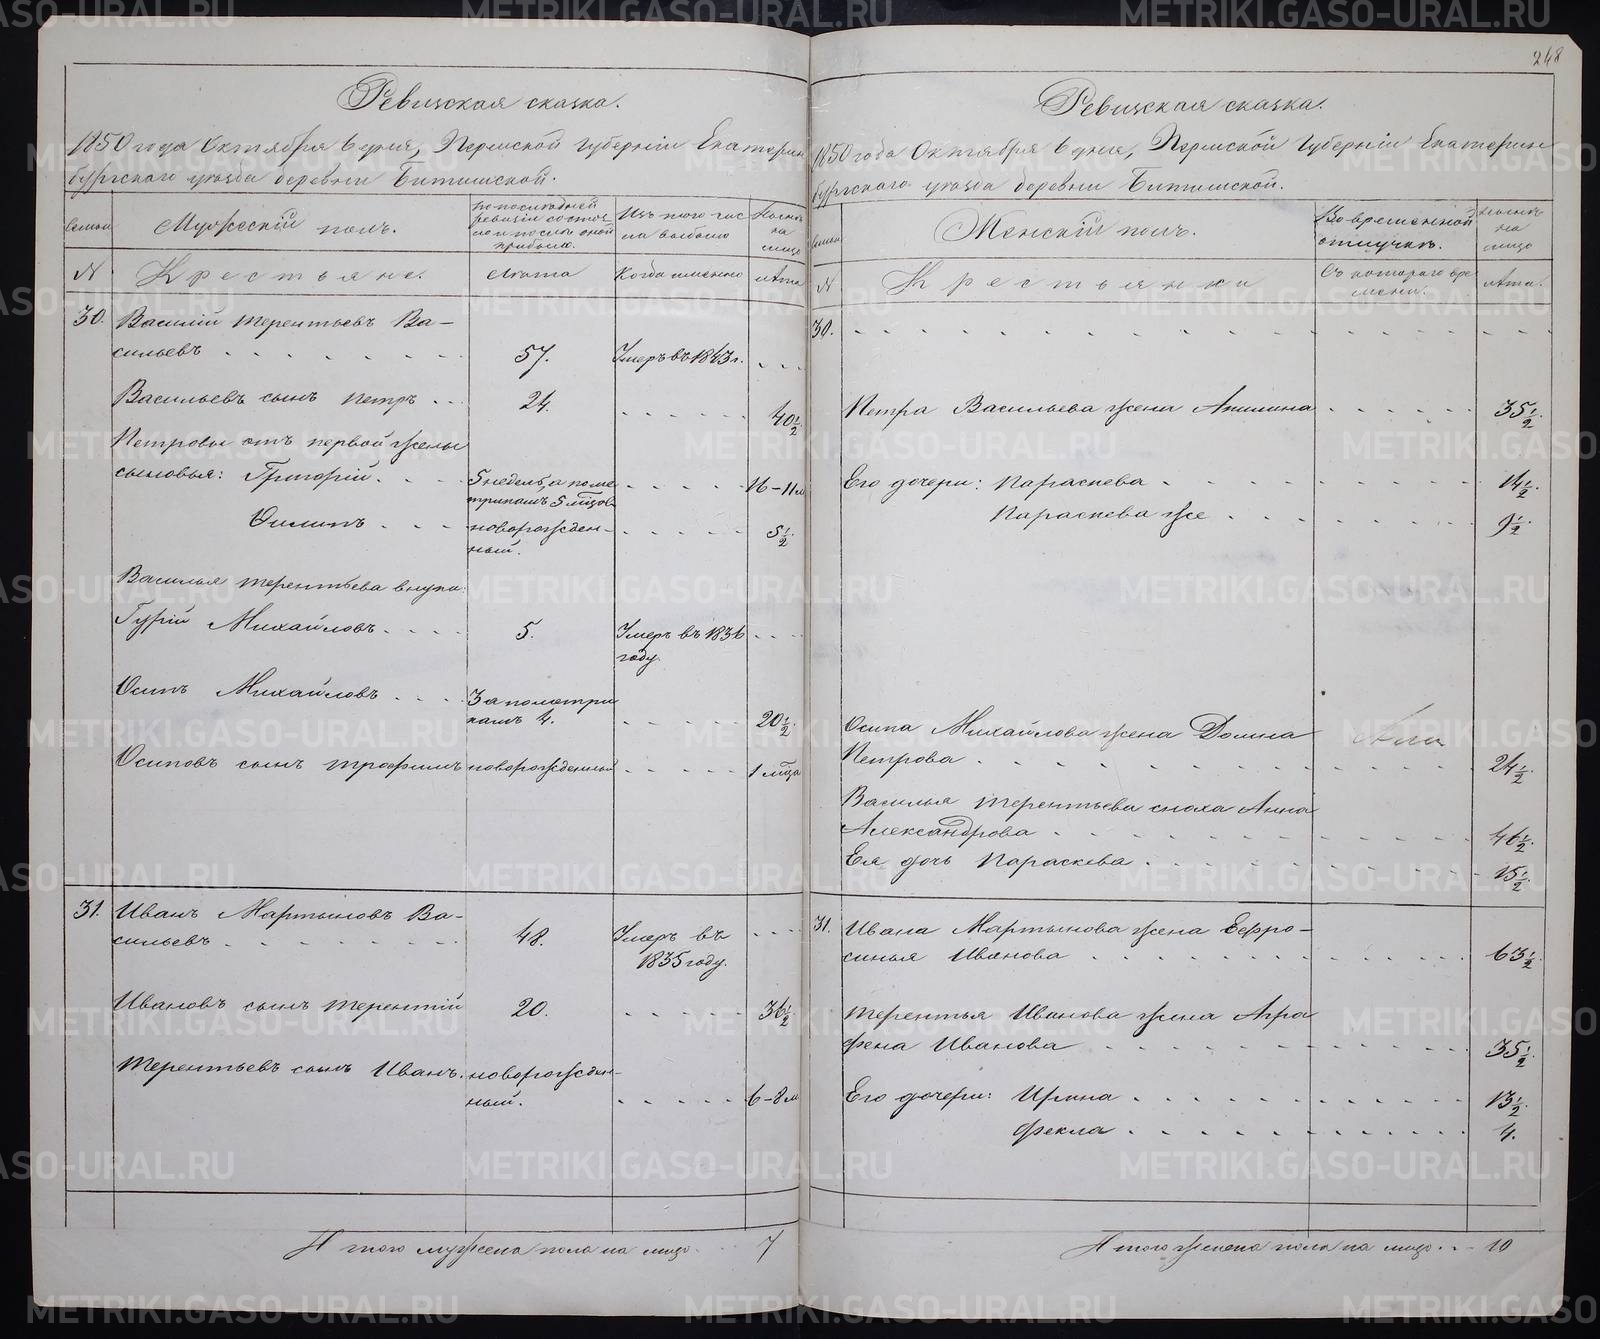 248
Ревизская сказка.
1850 года Октября 6 дня, Пермской Губернiи Екатерин
бургскаго уѣзда деревни
семьи
Мужескiй полъ.
по последней
ревизiи состоя-
ло и послѣ оной
прибыло.
Изъ того чис
ла выбыло
Нынѣ
на
лицо
№
Крестьяне.
Лѣта
Когда именно
Лѣта
30.
Василiй Терентьевъ Ва-
сильевъ
57.
Умеръ въ 1843 г.
Васильевъ сынъ Петръ
24.
40 1/2
Петровы отъ первой жены
сыновья: Григорiй.
5 недель, а по ме
трикамъ 5 мѣсяцов
16-11 м
новорожден-
ный.
5 1/2
Василья Терентьева внуки:
Гурiй Михайловъ
5.
Умеръ въ 1836
году.
Осипъ Михайловъ
3 а по метри
камъ 4.
20 1/2
Осиповъ сынъ Трофимъ
новорожденный
1 мѣсяца
31.
Иванъ Мартыновъ Ва-
сильевъ
48.
Умеръ въ
1835 году.
Ивановъ сынъ Терентiй
20.
36 1/2
Терентьевъ сынъ Иванъ.
новорожден-
ный.
6-8 м
Итого мужеска пола на лицо
7
Ревизская сказка.
1850 года Октября 6 дня, Пермской Губернiи Екатерин
бургскаго уѣзда деревни
семьи
Женскiй полъ.
Во временной
отлучкѣ.
Нынѣ
на
лицо
№
Крестьянки
Съ котораго вре
мени.
Лѣта.
30.
Петра Васильева жена Акилина
35 1/2
Его дочери: Параскева
14 1/2
Параскева же
9 1/2
Осипа Михайлова жена Домна
Петрова
24 1/2
Василья Терентьева сноха Анна
Александрова
46 1/2
Ея дочь Параскева
15 1/2
31.
Ивана Мартынова жена Еефро-
синья Иванова
63 1/2
Терентья Иванова жена Агра
фена Иванова
35 1/2
Его дочери: Ирина
13 1/2
Фекла
4.
Итого женска пола на лицо
10
METRIKI.GASO-URAL.RU